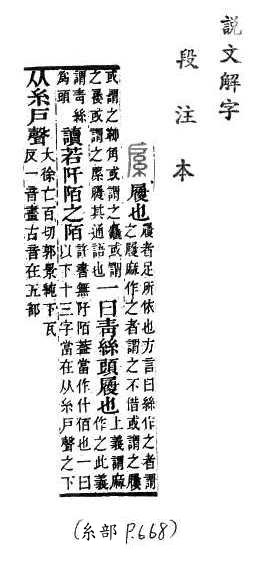 說文解字
段注本
履也
履者足所依也方言曰絲作之者謂
之履麻作之者謂之不借或謂之
或謂之角或謂之麤或謂
之或謂之履其通語也
一曰靑絲頭履也
上義謂麻
作之此義
謂靑絲
爲頭
讀若阡陌之陌
許書無阡陌葢當作什佰也一曰
以下十三字當在从糸戶聲之下
从糸戶聲
大徐亡百切郭景純下瓦
反一音畫古音在五部
(糸部 P.668)